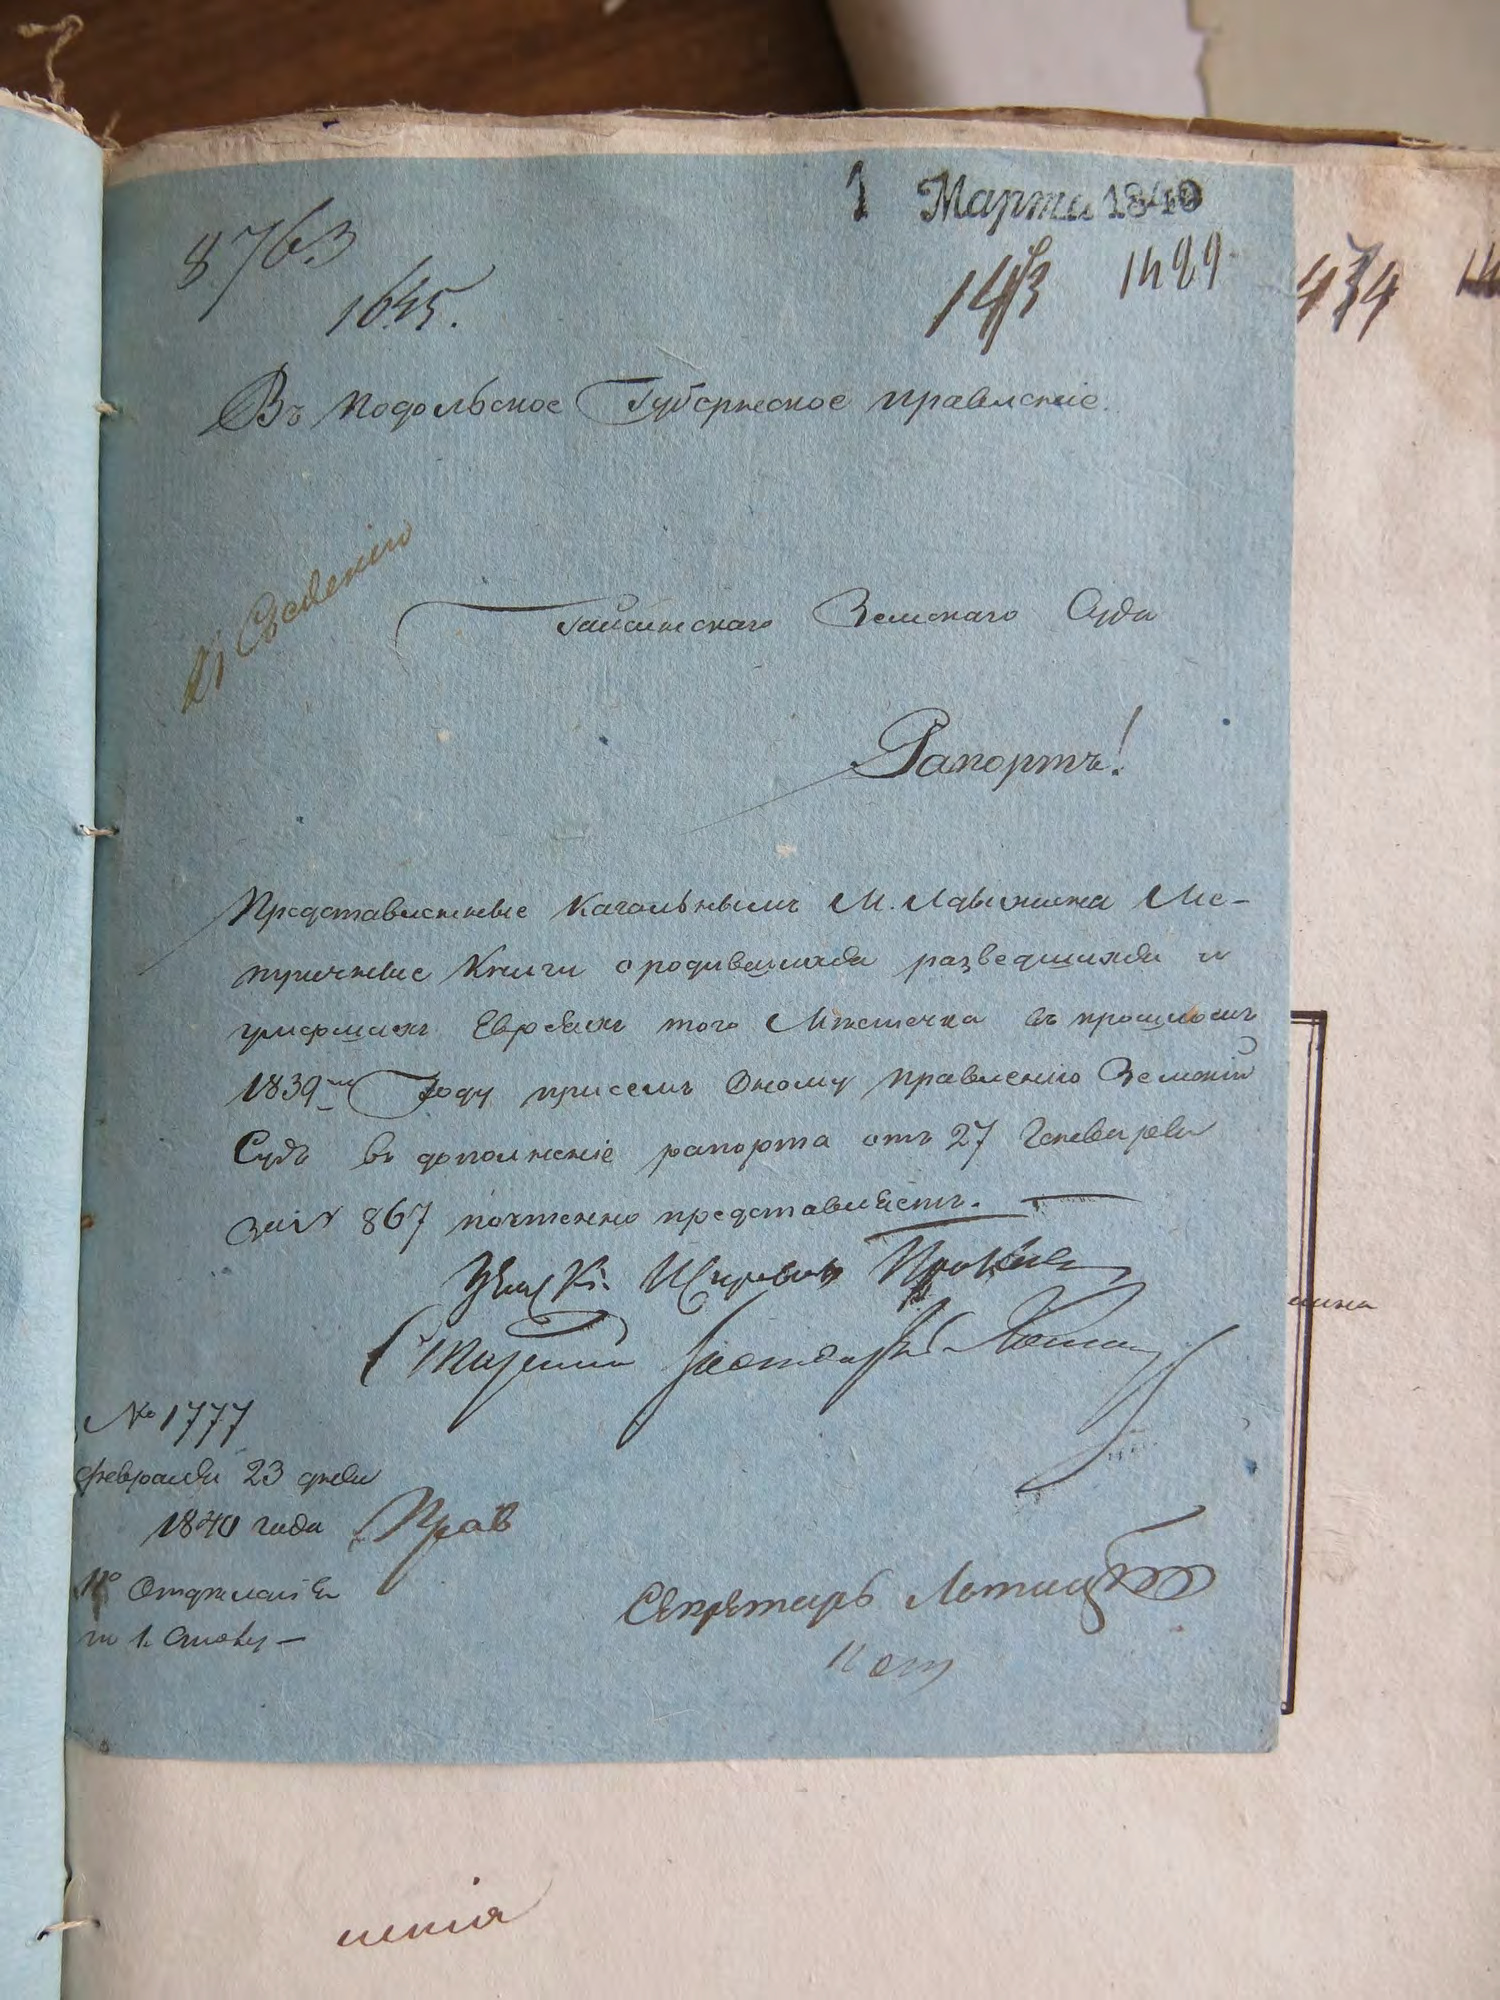 1 Марта 1840
8763
1645.
1489
474
Въ Подольское Губернское правленіе.
Къ Сведенію
Гайсинскаго Земскаго Суда
Рапортъ!
Представленные Кагальнымъ М. Ладыжина Ме-
тричные Книги о родившихся разведшихся и
умершихъ Евреяхъ того Местечка въ прошломъ
1839мъ Году присемъ Оному правленію Земскій
Судъ въ дополненіе рапорта отъ 27 Генваря
за № 867 почтенно представляетъ.
№ 1777
февраля 23 дня
1840 года
По Отдѣленію
1. Столу
Секретарь
шина
ненія